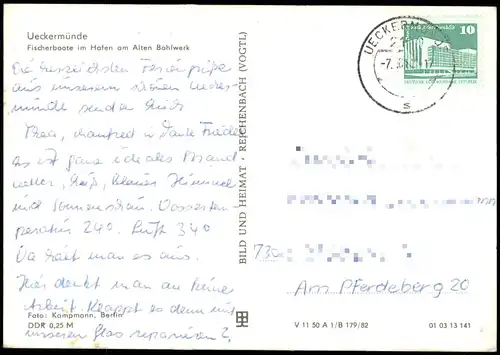 Ueckermünde
Fischerboote im Hafen am Alten Bohlwerk
Die herzlichsten Feriengrüße
aus unserem schönen Uecker-
münde senden Euch
Thea, Manfred u. Tante Friedel
Es ist ganz ideales Strand-
wetter, heiß, blauer Himmel
und Sonnenschein. Wassertem-
peratur 24°. Luft 34°
Da hält man es aus.
Hier denkt man an keine
Arbeit. Klappt es denn mit
unseren Glas reparieren?
Foto: Kampmann, Berlin
DDR 0,25 M
BILD UND HEIMAT REICHENBACH (VOGTL)
V 11 50 A 1/B 179/82
01 03 13 141
UECKERM
-7.
S
10
730
Am Pferdeberg 20